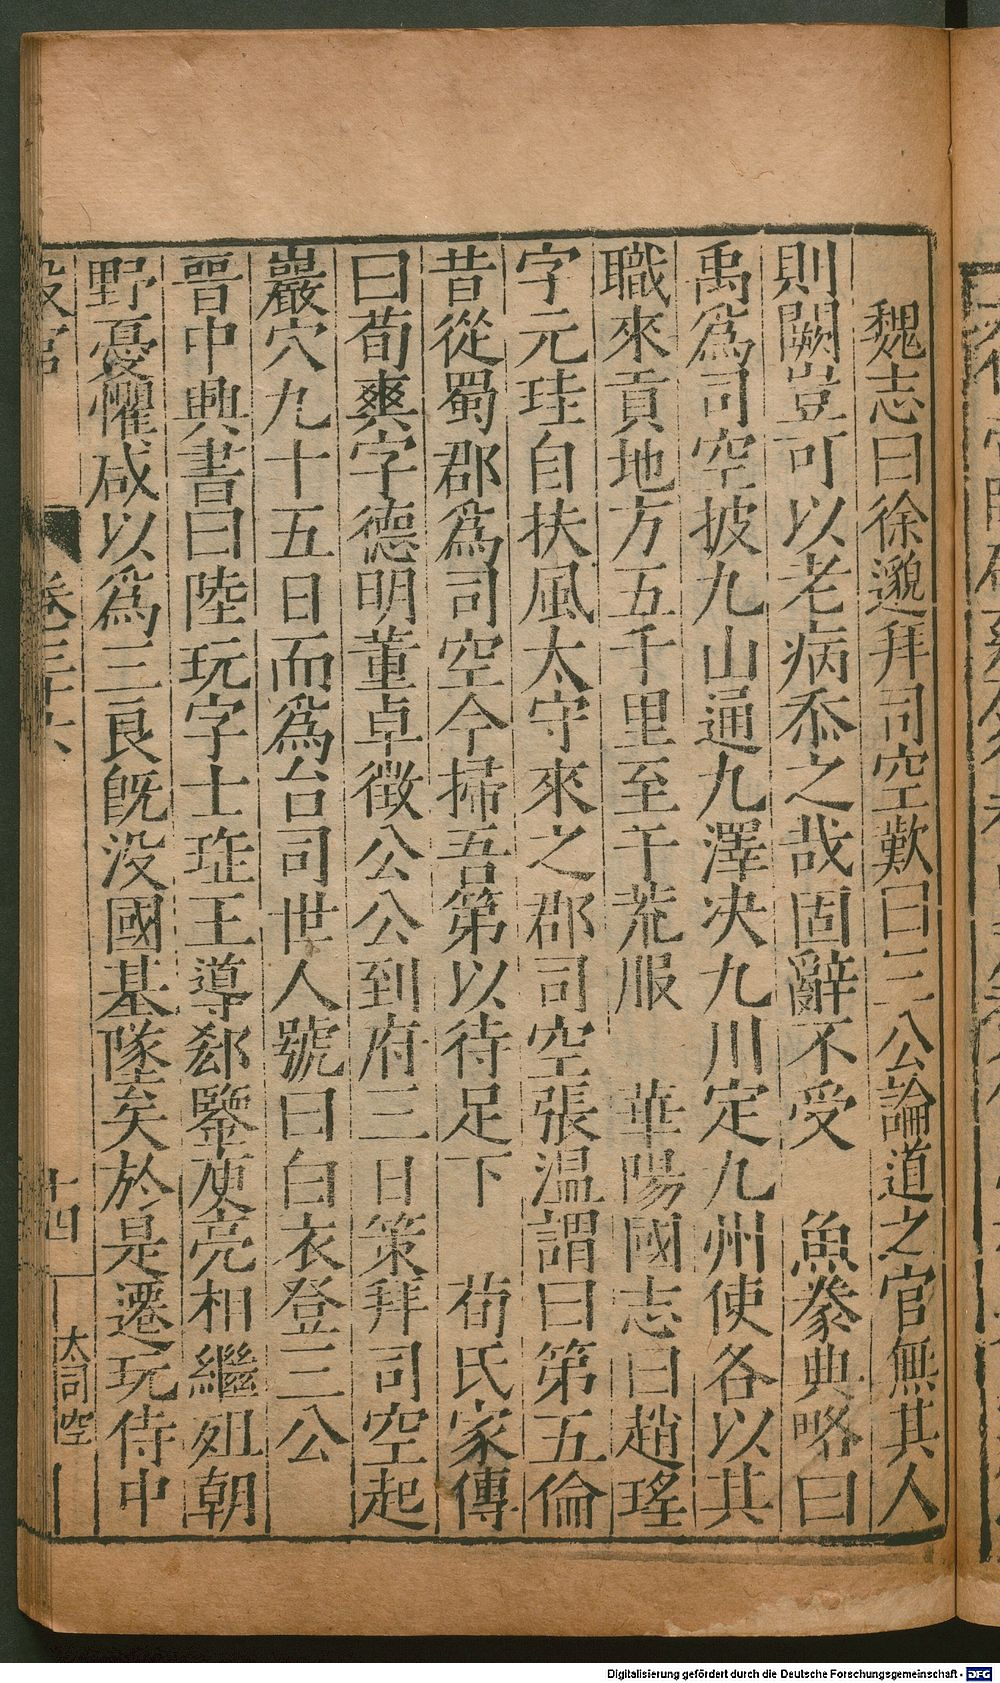 魏志曰徐邈拜司空歎曰三公論道之官無其人
則闕豈可以老病忝之哉固辭不受　魚豢典略曰
禹爲司空披九山通九澤决九川定九州使各以其
職來貢地方五千里至于荒服　華陽國志曰趙瑤
字元珪自扶風太守來之郡司空張温謂曰第五倫
昔從蜀郡爲司空今掃吾第以待足下　荀氏家傳
曰荀爽字德明董卓徵公公到府三日策拜司空起
巖穴九十五日而爲台司世人號曰白衣登三公
晉中興書曰陸玩字士瑶王導郄鑒庾亮相繼殂朝
野憂懼咸以爲三良旣没國基墜矣於是遷玩侍中
設官
卷三十六
十四
大司空
Digitalisierung gefördert durch die Deutsche Forschungsgemeinschaft - DFG